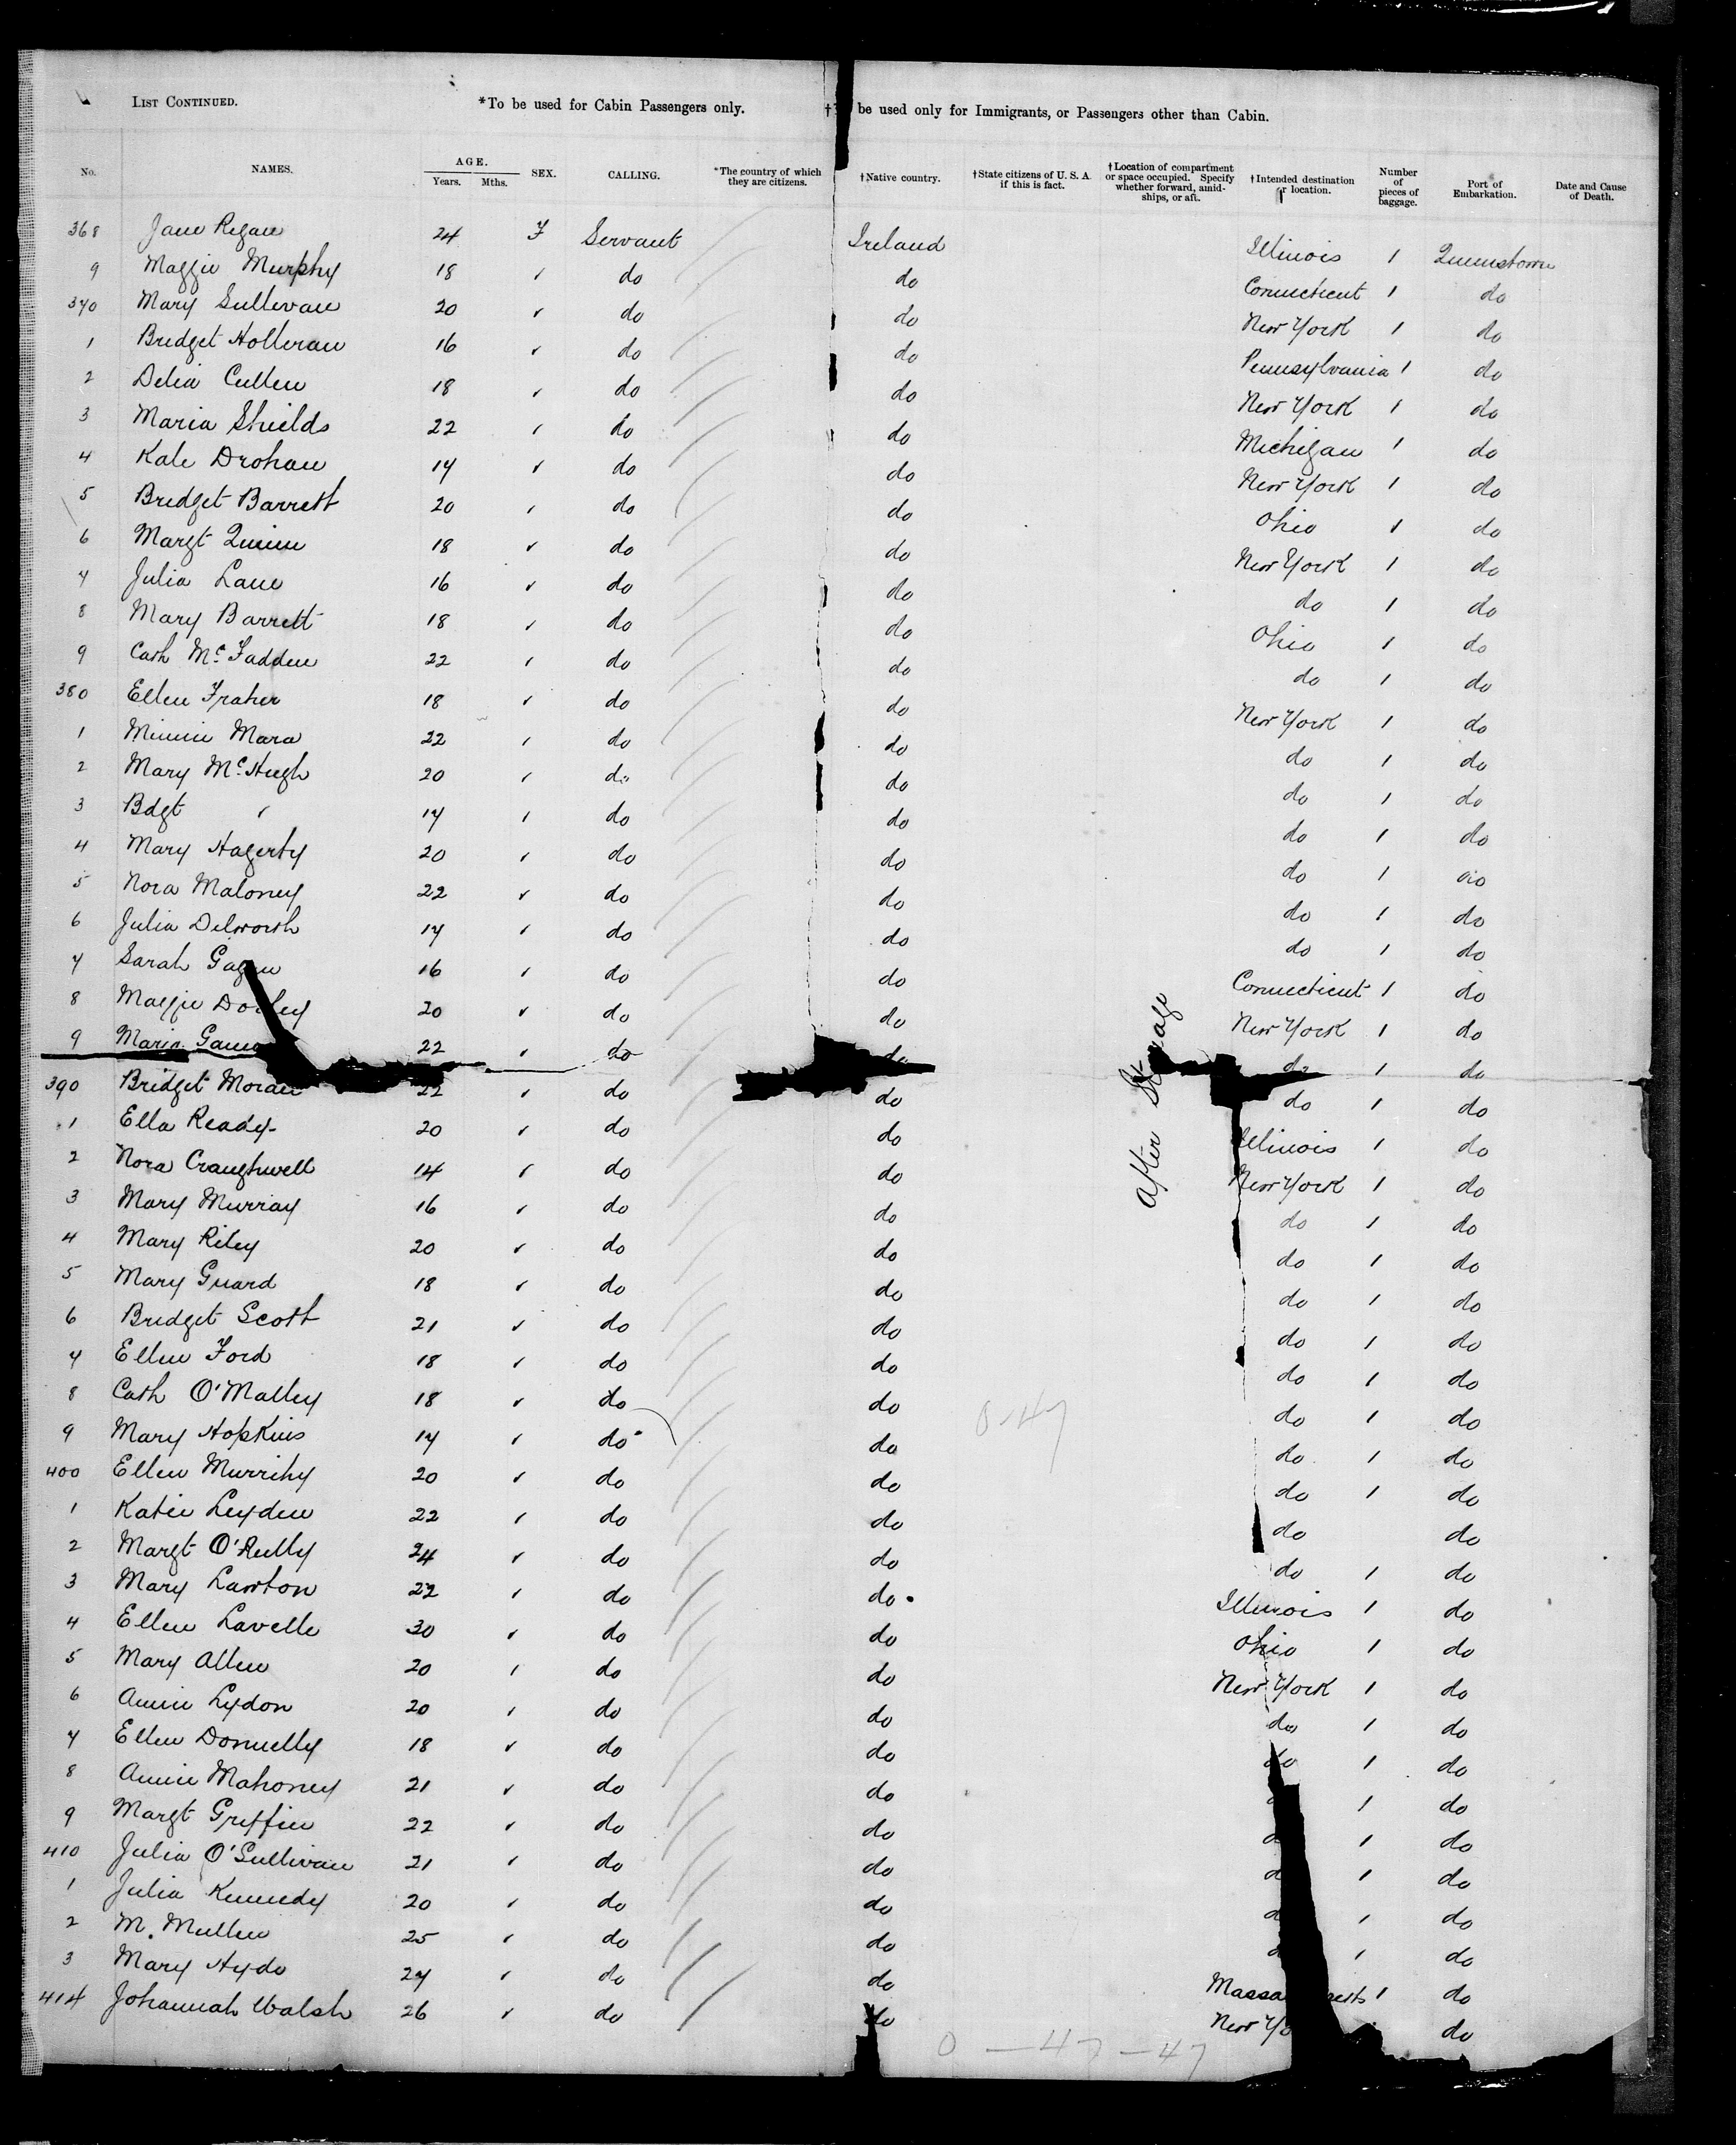 LIST CONTINUED. *To be used for Cabin Passengers only. † be used only for Immigrants, or Passengers other than Cabin.
No. NAMES. AGE. Years. Mths. SEX. CALLING. *The country of which they are citizens. †Native country. †State citizens of U. S. A. if this is fact. †Location of compartment or space occupied. Specify whether forward, amidships, or aft. †Intended destination or location. Number of pieces of baggage. Port of Embarkation. Date and Cause of Death.
368 Jane Regan 24 F Servant Ireland Illinois 1 Queenstown
9 Maggie Murphy 18 " do do Connecticut 1 do
370 Mary Sullivan 20 " do do New York 1 do
1 Bridget Holleran 16 " do do Pennsylvania 1 do
2 Delia Cullen 18 " do do New York 1 do
3 Maria Shields 22 " do do Michigan 1 do
4 Kate Drohan 17 " do do New York 1 do
5 Bridget Barrett 20 " do do Ohio 1 do
6 Margt Quinn 18 " do do New York 1 do
7 Julia Lane 16 " do do do 1 do
8 Mary Barrett 18 " do do Ohio 1 do
9 Cath McFadden 22 " do do do 1 do
380 Ellen Fraher 18 " do do New York 1 do
1 Minnie Mara 22 " do do do 1 do
2 Mary McHugh 20 " do do do 1 do
3 Bdgt " 17 " do do do 1 do
4 Mary Hagerty 20 " do do do 1 do
5 Nora Maloney 22 " do do do 1 do
6 Julia Delworth 17 " do do do 1 do
7 Sarah 16 " do do Connecticut 1 do
8 Maggie 20 " do do New York 1 do
9 Maria 22 " do do do 1 do
390 Bridget Moran 22 " do do do 1 do
1 Ella Ready 20 " do do Illinois 1 do
2 Nora Craughwell 17 " do do New York 1 do
3 Mary Murray 16 " do do do 1 do
4 Mary Riley 20 " do do do 1 do
5 Mary Guard 18 " do do do 1 do
6 Bridget Scott 21 " do do do 1 do
7 Ellen Ford 18 " do do do 1 do
8 Cath O'Malley 18 " do do do 1 do
9 Mary Hopkins 17 " do do do 1 do
400 Ellen Murrihy 20 " do do do 1 do
1 Katie Leyden 22 " do do do do
2 Margt O'Reilly 24 " do do do 1 do
3 Mary Lawton 22 " do do Illinois 1 do
4 Ellen Lavelle 30 " do do Ohio 1 do
5 Mary Allen 20 " do do New York 1 do
6 Annie Lydon 20 " do do do 1 do
7 Ellen Donnelly 18 " do do do 1 do
8 Annie Mahoney 21 " do do 1 do
9 Margt Griffin 22 " do do 1 do
410 Julia O'Sullivan 21 " do do 1 do
1 Julia Kennedy 20 " do do 1 do
2 M. Mullen 25 " do do 1 do
3 Mary Hyde 27 " do do 1 do
414 Johannah Walsh 26 " do do New do
After
0-47
0 — 47 — 47